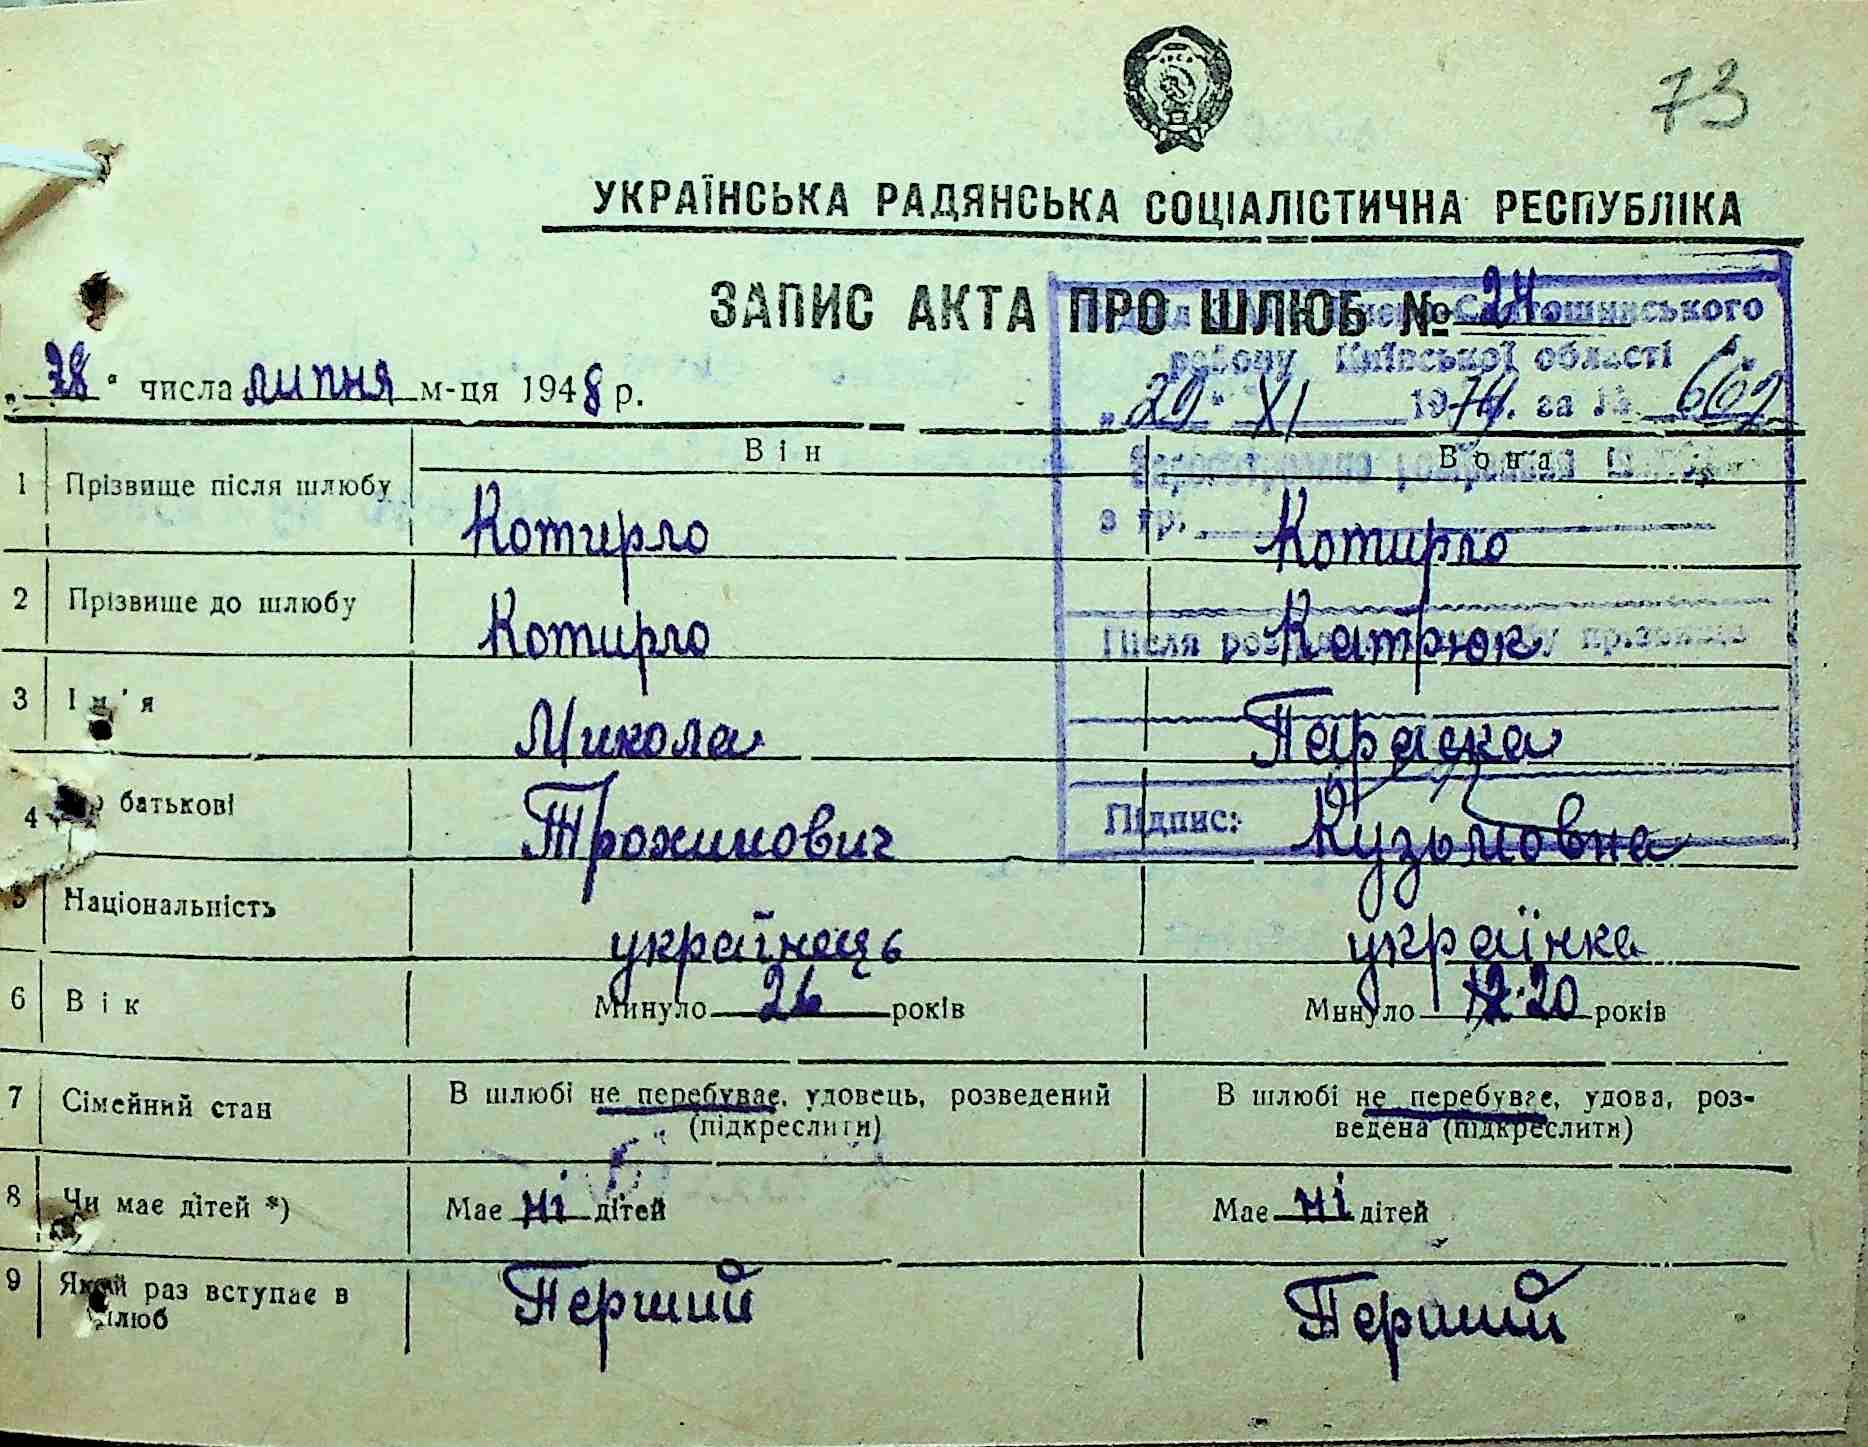 73
УКРАЇНСЬКА РАДЯНСЬКА СОЦІАЛІСТИЧНА РЕСПУБЛІКА
ЗАПИС АКТА ПРО ШЛЮБ № 24
„ 28 " числа липня м-ця 1948 р.
Святошинського
району Київської області
„29" XI 1974р. за № 669
Зареєстровано розірвання шлюбу
з гр.
Після розірвання шлюбу прізвище
Підпис:
Він Вона
1 Прізвище після шлюбу Котирло Котирло
2 Прізвище до шлюбу Котирло Катрюк
3 Ім'я Микола Параска
4 По батькові Трохимович Кузьмовна
5 Національність українець українка
6 Вік Минуло 26 років Минуло 20 років
7 Сімейний стан В шлюбі не перебуває, удовець, розведений (підкреслити) В шлюбі не перебуває, удова, роз-
ведена (підкреслити)
8 Чи має дітей *) Має ні дітей Має ні дітей
9 Який раз вступає в шлюб Перший Перший